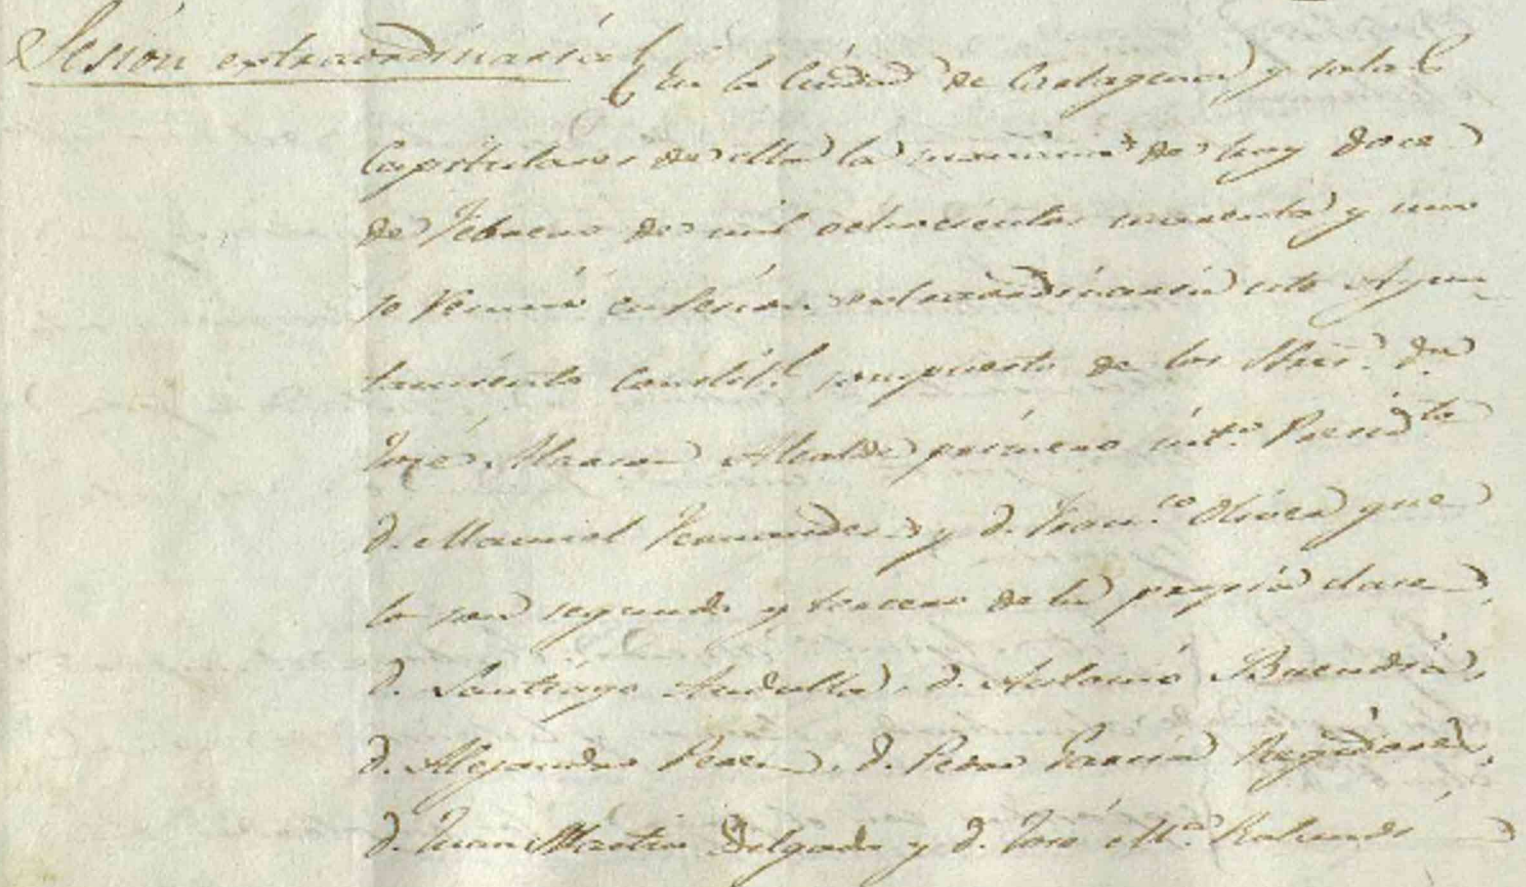 Sesion extraordinaria En la Ciudad de Cartagena y salas
Capitulares de ella la mañana de hoy doce
de Febrero de mil ochocientos cuarenta y uno
se reunió en sesion extraordinaria este Ayun
tamiento Constitl. compuesto de los Sres. dn
José Alarcon Alcalde primero intº Presidte
d. Manuel Fernandez y d. Franco. Oliver que
lo son segundo y tercero de la propia clase,
d. Santiago d. Antonio Buendia,
d. Alejandro Perez, d. Pedro Garcia Regidores,
d. Juan Martin Delgado y d. José Mª.